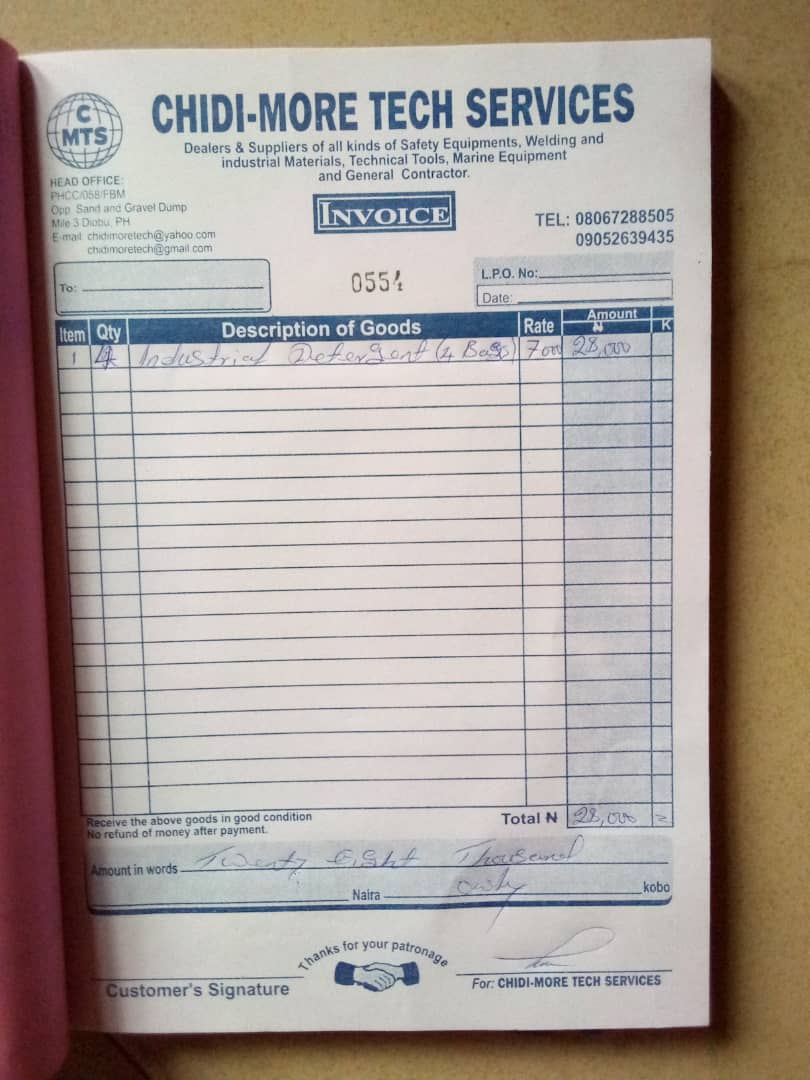 C
MTS
CHIDI-MORE TECH SERVICES
Dealers & Suppliers of all kinds of Safety Equipments, Welding and
industrial Materials, Technical Tools, Marine Equipment
and General Contractor.
HEAD OFFICE:
PHCC/058/FBM
Opp. Sand and Gravel Dump
Mile 3 Diobu, PH
E-mail: chidimoretech@yahoo.com
chidimoretech@gmail.com
INVOICE
TEL: 08067288505
09052639435
To:
0554
L.P.O. No:
Date:
Item Qty Description of Goods Rate Amount ₦ K
1 4 Industrial Detergent (4 Bags) 7000 28,000
Receive the above goods in good condition
No refund of money after payment.
Total ₦ 28,000 =
Amount in words Twenty Eight Thousand
Naira only kobo
Thanks for your patronage
Customer's Signature
For: CHIDI-MORE TECH SERVICES